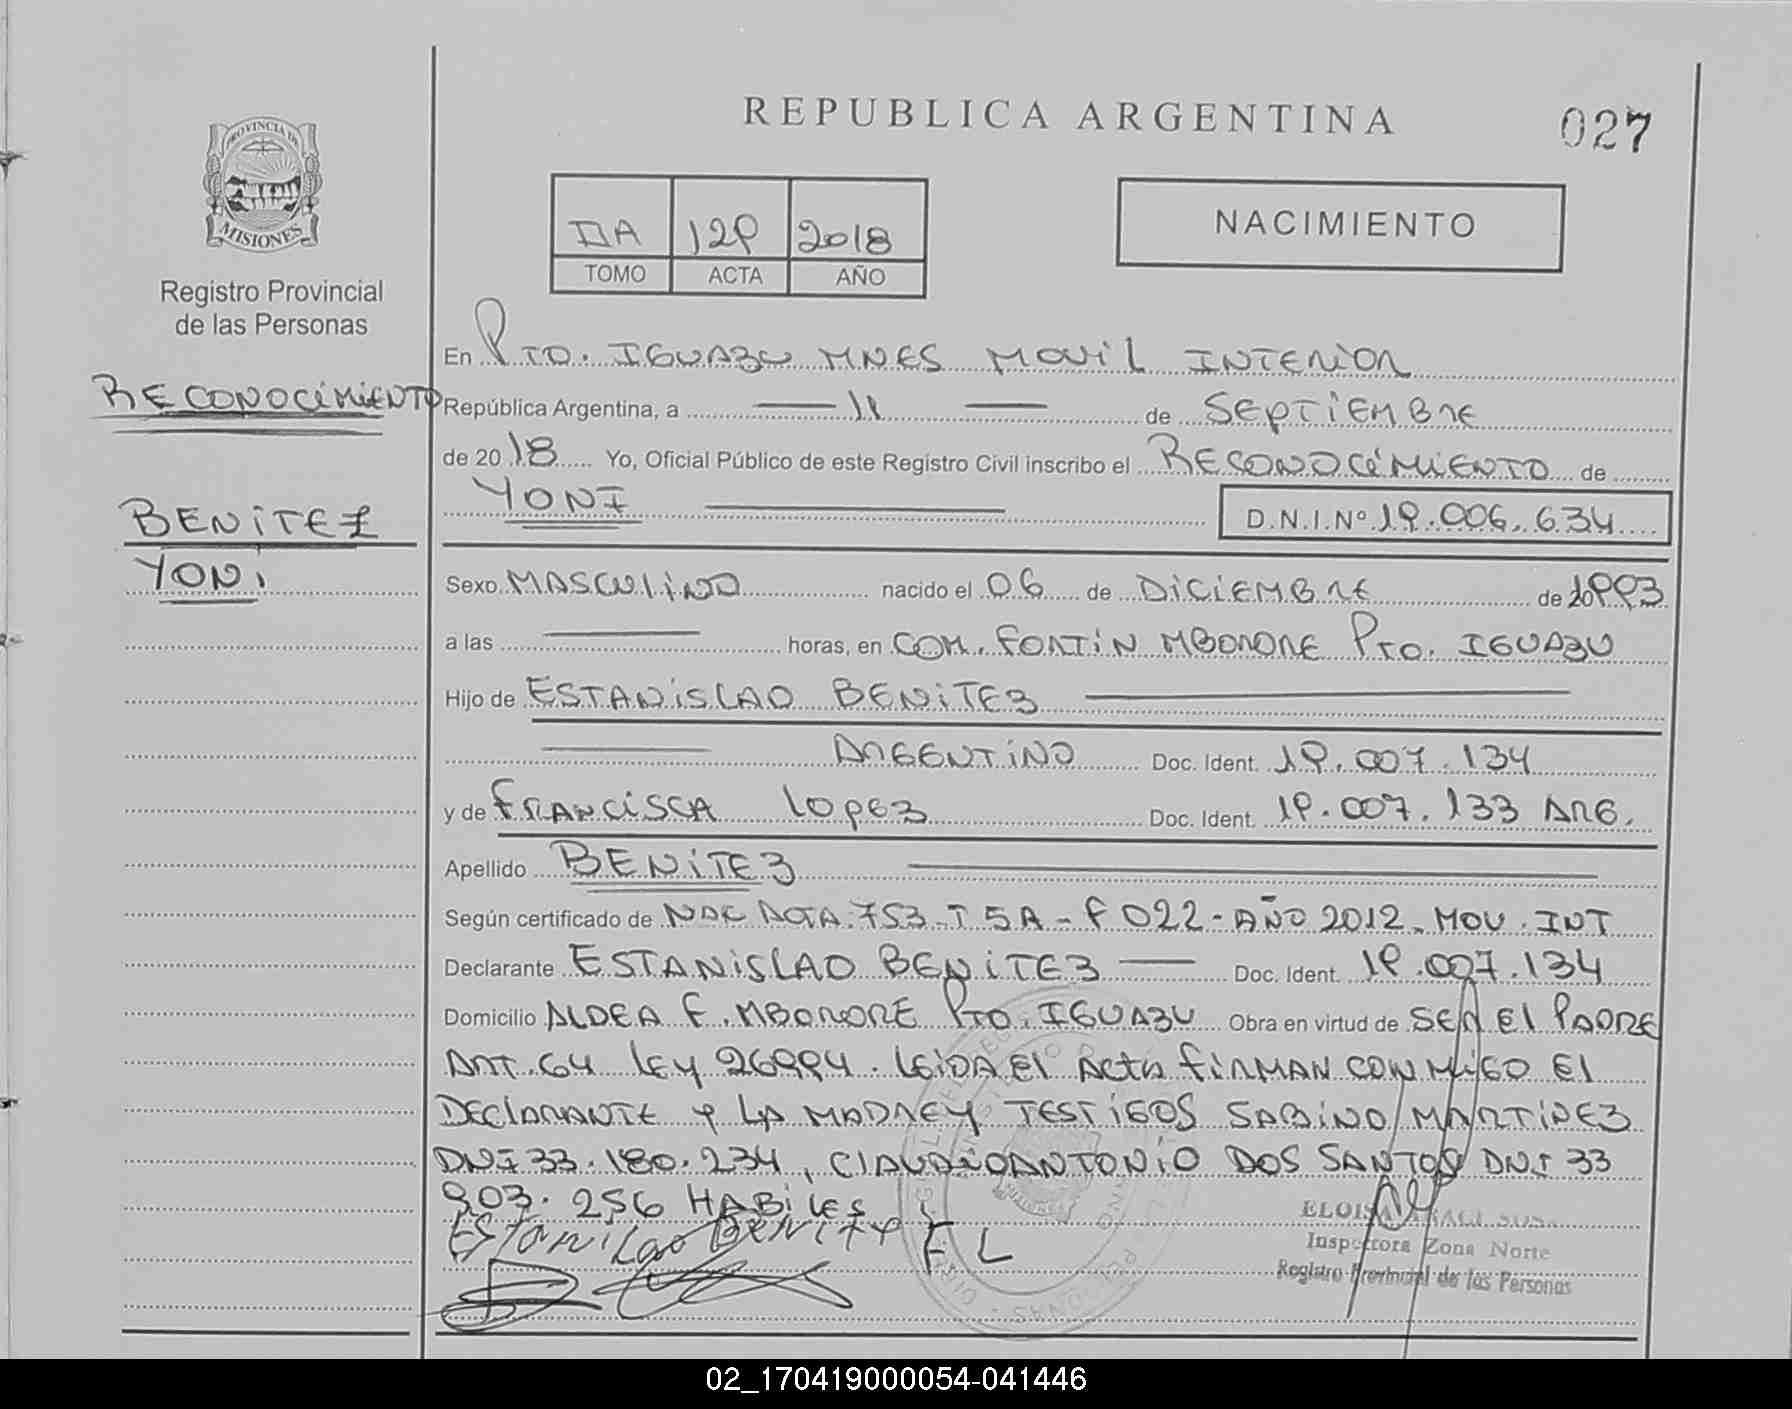 REPUBLICA ARGENTINA
027
PROVINCIA DE
MISIONES
Registro Provincial
de las Personas
IIA 129 2018
TOMO ACTA AÑO
NACIMIENTO
RECONOCIMIENTO
BENITEZ
YONI
En Pto. IGUAZU MNES MOVIL INTERIOR
República Argentina, a 11 de SEPTIEMBRE
de 2018 Yo, Oficial Público de este Registro Civil inscribo el RECONOCIMIENTO de
YONI D.N.I.Nº 19.006.634
Sexo MASCULINO nacido el 06 de DICIEMBRE de 1993
a las horas, en COM. FORTIN MBORORE Pto. IGUAZU
Hijo de ESTANISLAO BENITEZ
ARGENTINO Doc. Ident. 19.007.134
y de FRANCISCA LOPEZ Doc. Ident. 19.007.133 ARG.
Apellido BENITEZ
Según certificado de NAC ACTA 753-T 5A-F 022-AÑO 2012. MOV. INT
Declarante ESTANISLAO BENITEZ Doc. Ident. 19.007.134
Domicilio ALDEA F. MBORORE Pto. IGUAZU Obra en virtud de SER El PADRE
ART. 64 LEY 26994. LEIDA El Acta FIRMAN CONMIGO El
DECLARANTE Y LA MADRE Y TESTIGOS SABINO MARTINEZ
DNI 33.180.234, CLAUDIO ANTONIO DOS SANTOS DNI 33
903.256 HABILES
Estanislao Benitez F L
Inspectora Zona Norte
Registro Provincial de las Personas
02_170419000054-041446